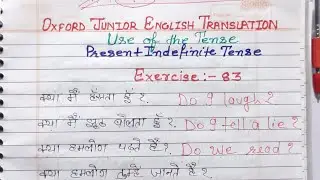 OXFORD JUNIOR ENGLISH TRANSLATION
Use of the Tense
Present Indefinite Tense
Exercise:- 83
क्या मैं हँसता हूँ ? Do I laugh?
क्या मैं झूठ बोलता हूँ ? Do I tell a lie?
क्या हमलोग पढ़ते हैं ? Do we read?
क्या हमलोग तुम्हें जानते हैं ?